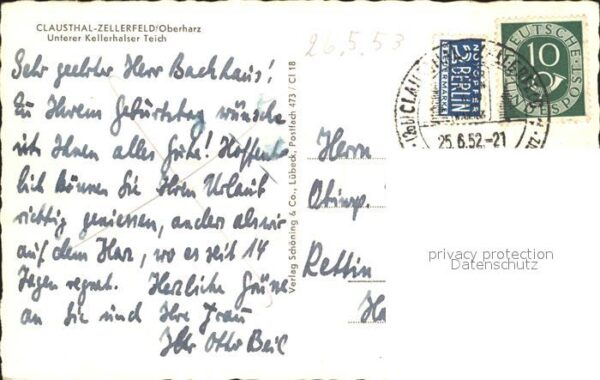 CLAUSTHAL-ZELLERFELD/Oberharz
Unterer Kellerhalser Teich
26.5.53
Sehr geehrter Herr Backhaus!
Zu Ihrem Geburtstag wünsche
ich Ihnen alles Gute! Hoffent-
lich können Sie Ihren Urlaub
richtig geniessen, anders als wir
auf dem Harz, wo es seit 14
Tagen regnet. Herzliche Grüsse
an Sie und Ihre Frau
Ihr Otto Beil
Verlag Schöning & Co., Lübeck, Postfach 473 / Cl 18
NOTOPFER
2 BERLIN
STEUERMARKE
DEUTSCHE POST
10
25.6.52.-21
Herrn
Obinsp.
Rettin
privacy protection
Datenschutz